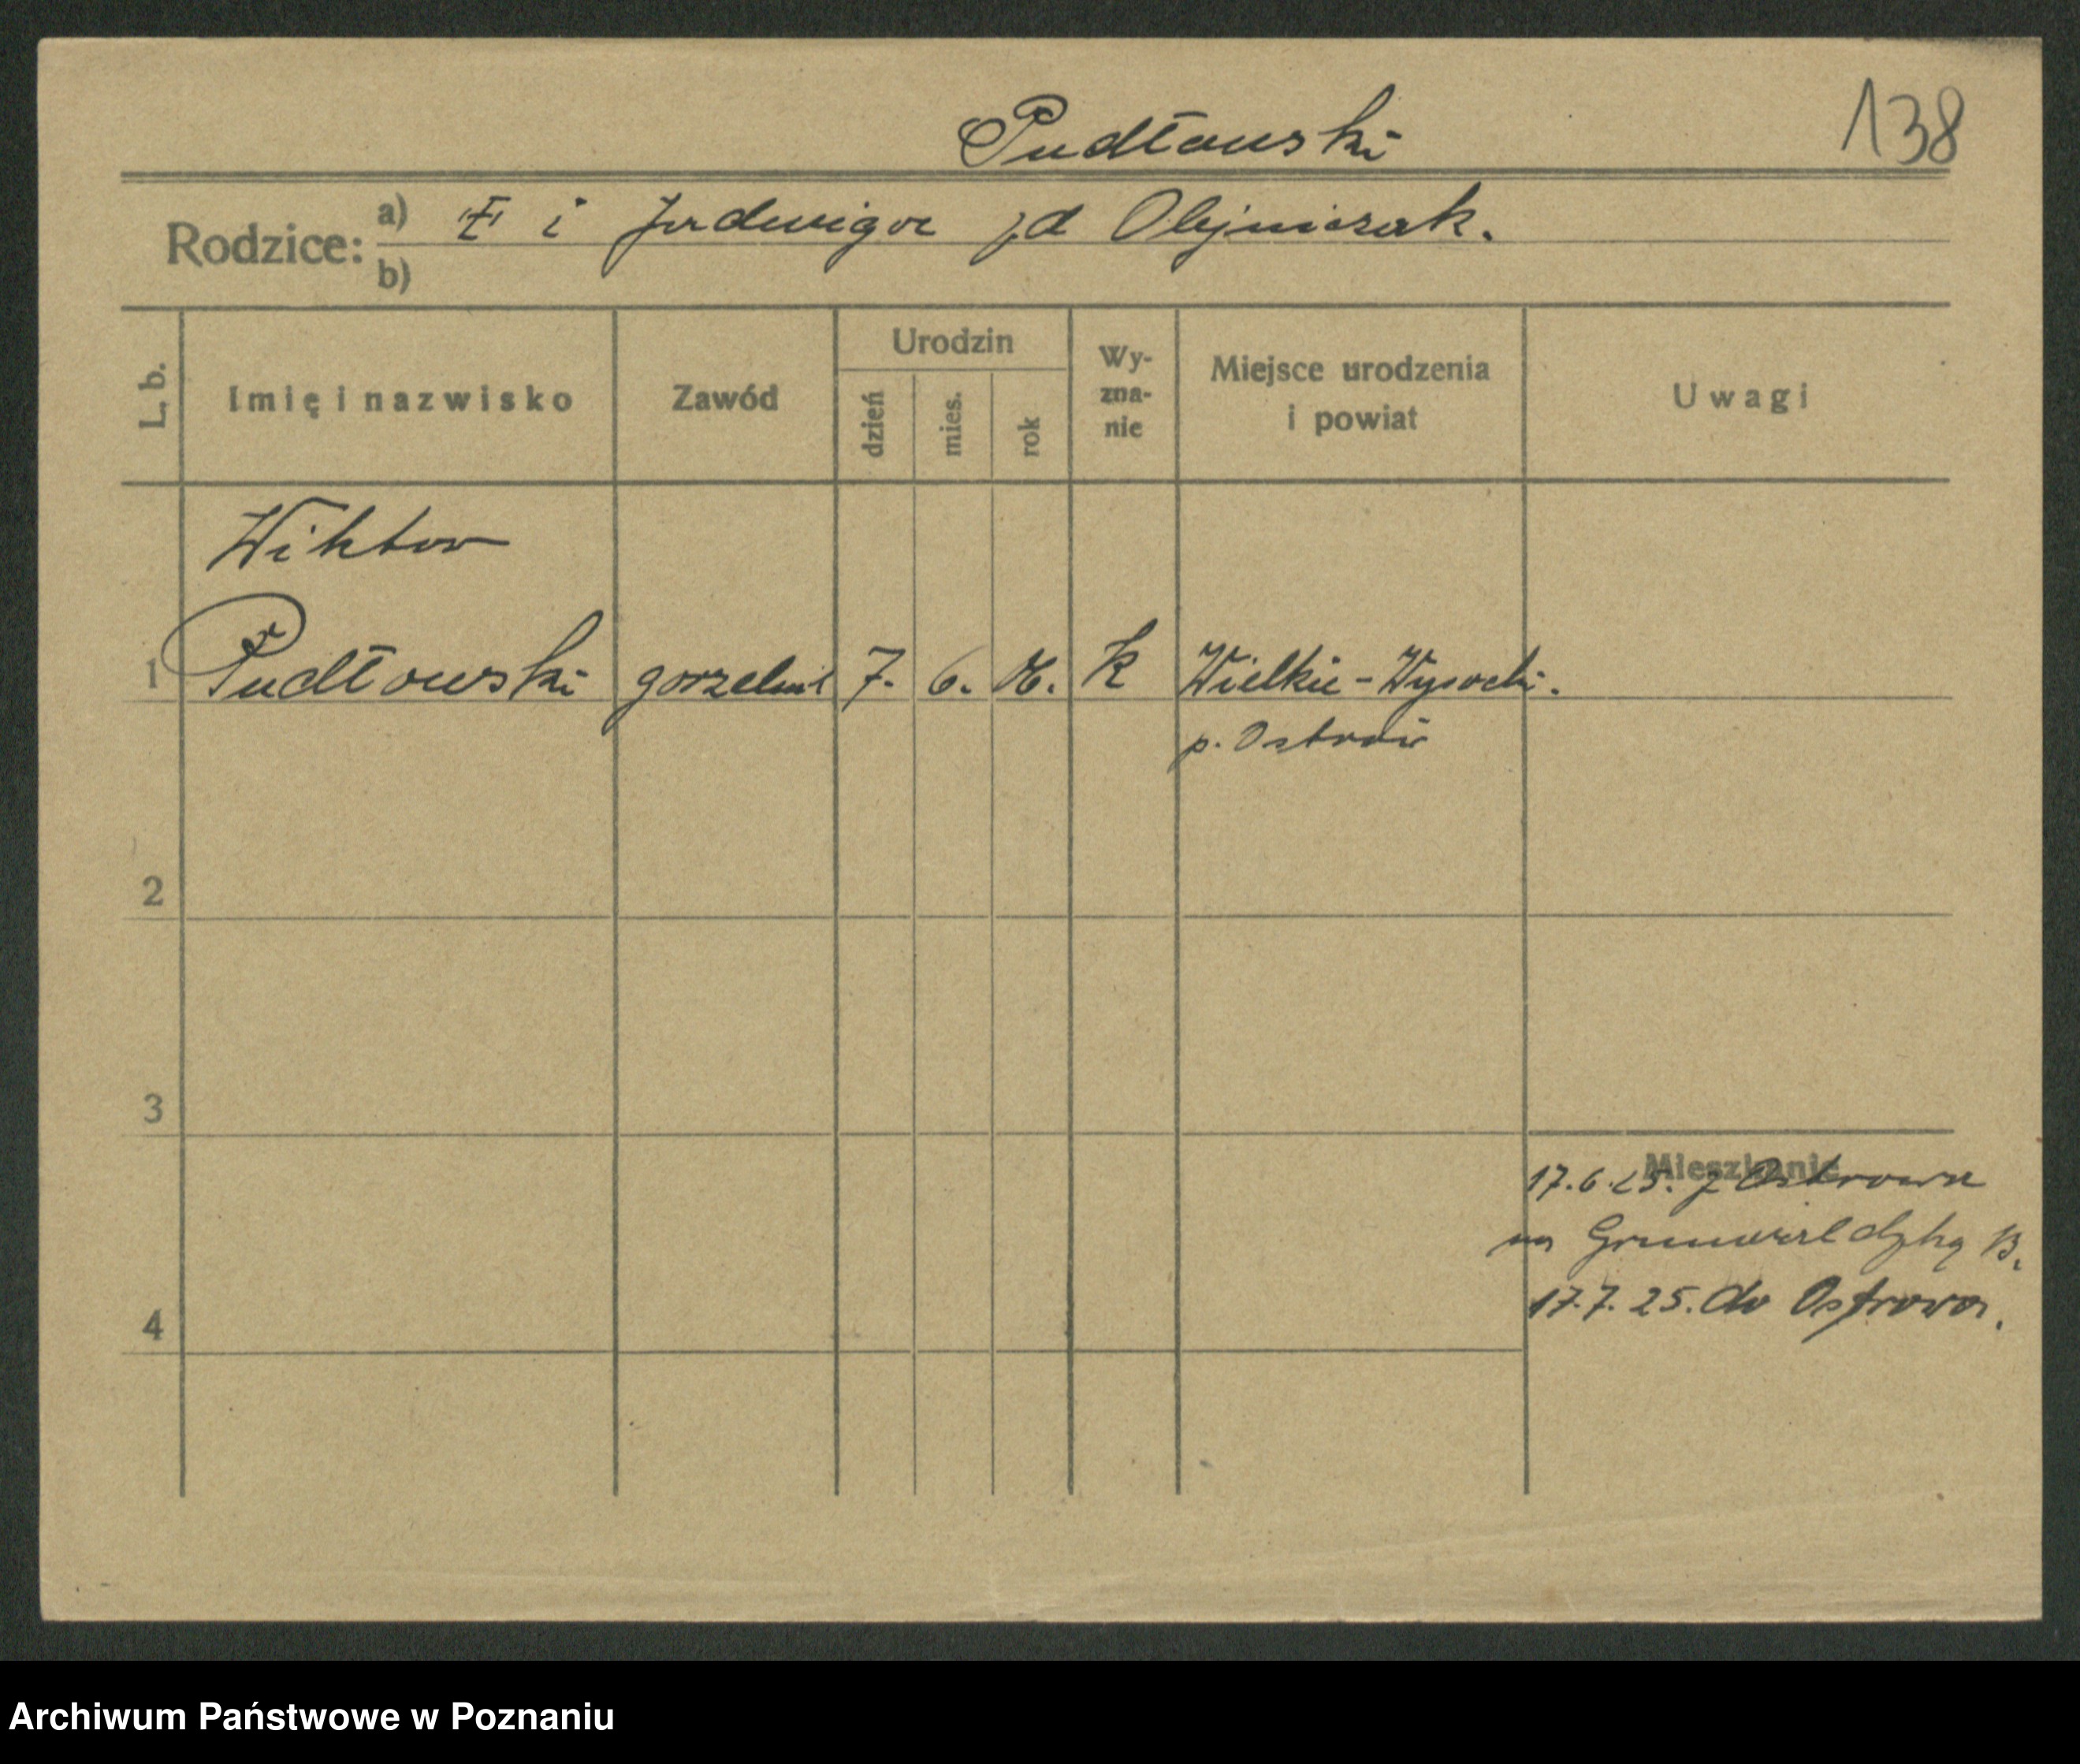 138
Pudłowski
Rodzice: a) i Jadwiga zd Olejniczak.
b)
L. b.
Imię i nazwisko
Zawód
Urodzin
dzień
mies.
rok
Wy-
zna-
nie
Miejsce urodzenia
i powiat
Uwagi
Wiktor
1 Pudłowski gorzelnik 7. 6. 06. K Wielkie-Wysocki.
p. Ostrów
2
3
Mieszkanie
17.6.25. z Ostrowa
na Grunwaldzką
17.7.25. do Ostrowa.
4
Archiwum Państwowe w Poznaniu